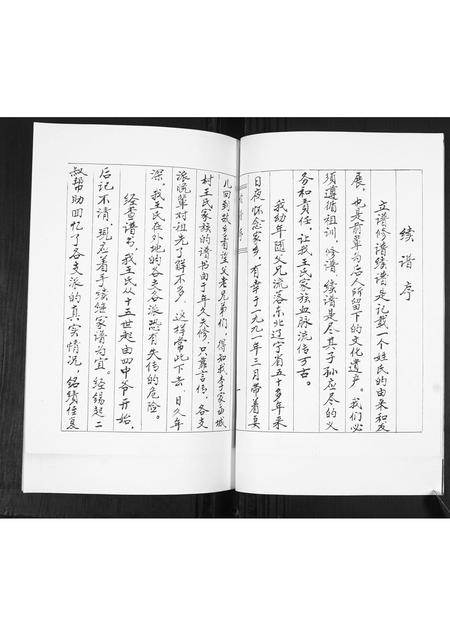 续谱序
立谱修谱续谱是记载一个姓氏的由来和发
展，也是前辈为后人所留下的文化遗产。我们必
须遵循祖训，修谱，续谱是尽其子孙应尽的义
务和责任，让我王氏家族血脉流传万古。
我幼年随父兄流落东北辽宁省五十多年来
日夜怀念家乡，有幸于一九九一年三月带着妻
儿回到故乡看望父老兄弟们，得知我李家西城
村王氏家族的谱书由于年久失修，只靠言传，各支
派晚辈对祖先了解不多，这样常此下去，日久年
深，我王氏在外地的各支各派恐有失传的危险。
经查谱书，我王氏从十五世起由四中爷开始，
后记不清，现应着手续继家谱为宜。经锡起二
叔帮助回忆了各支派的真实情况，绍绩侄复